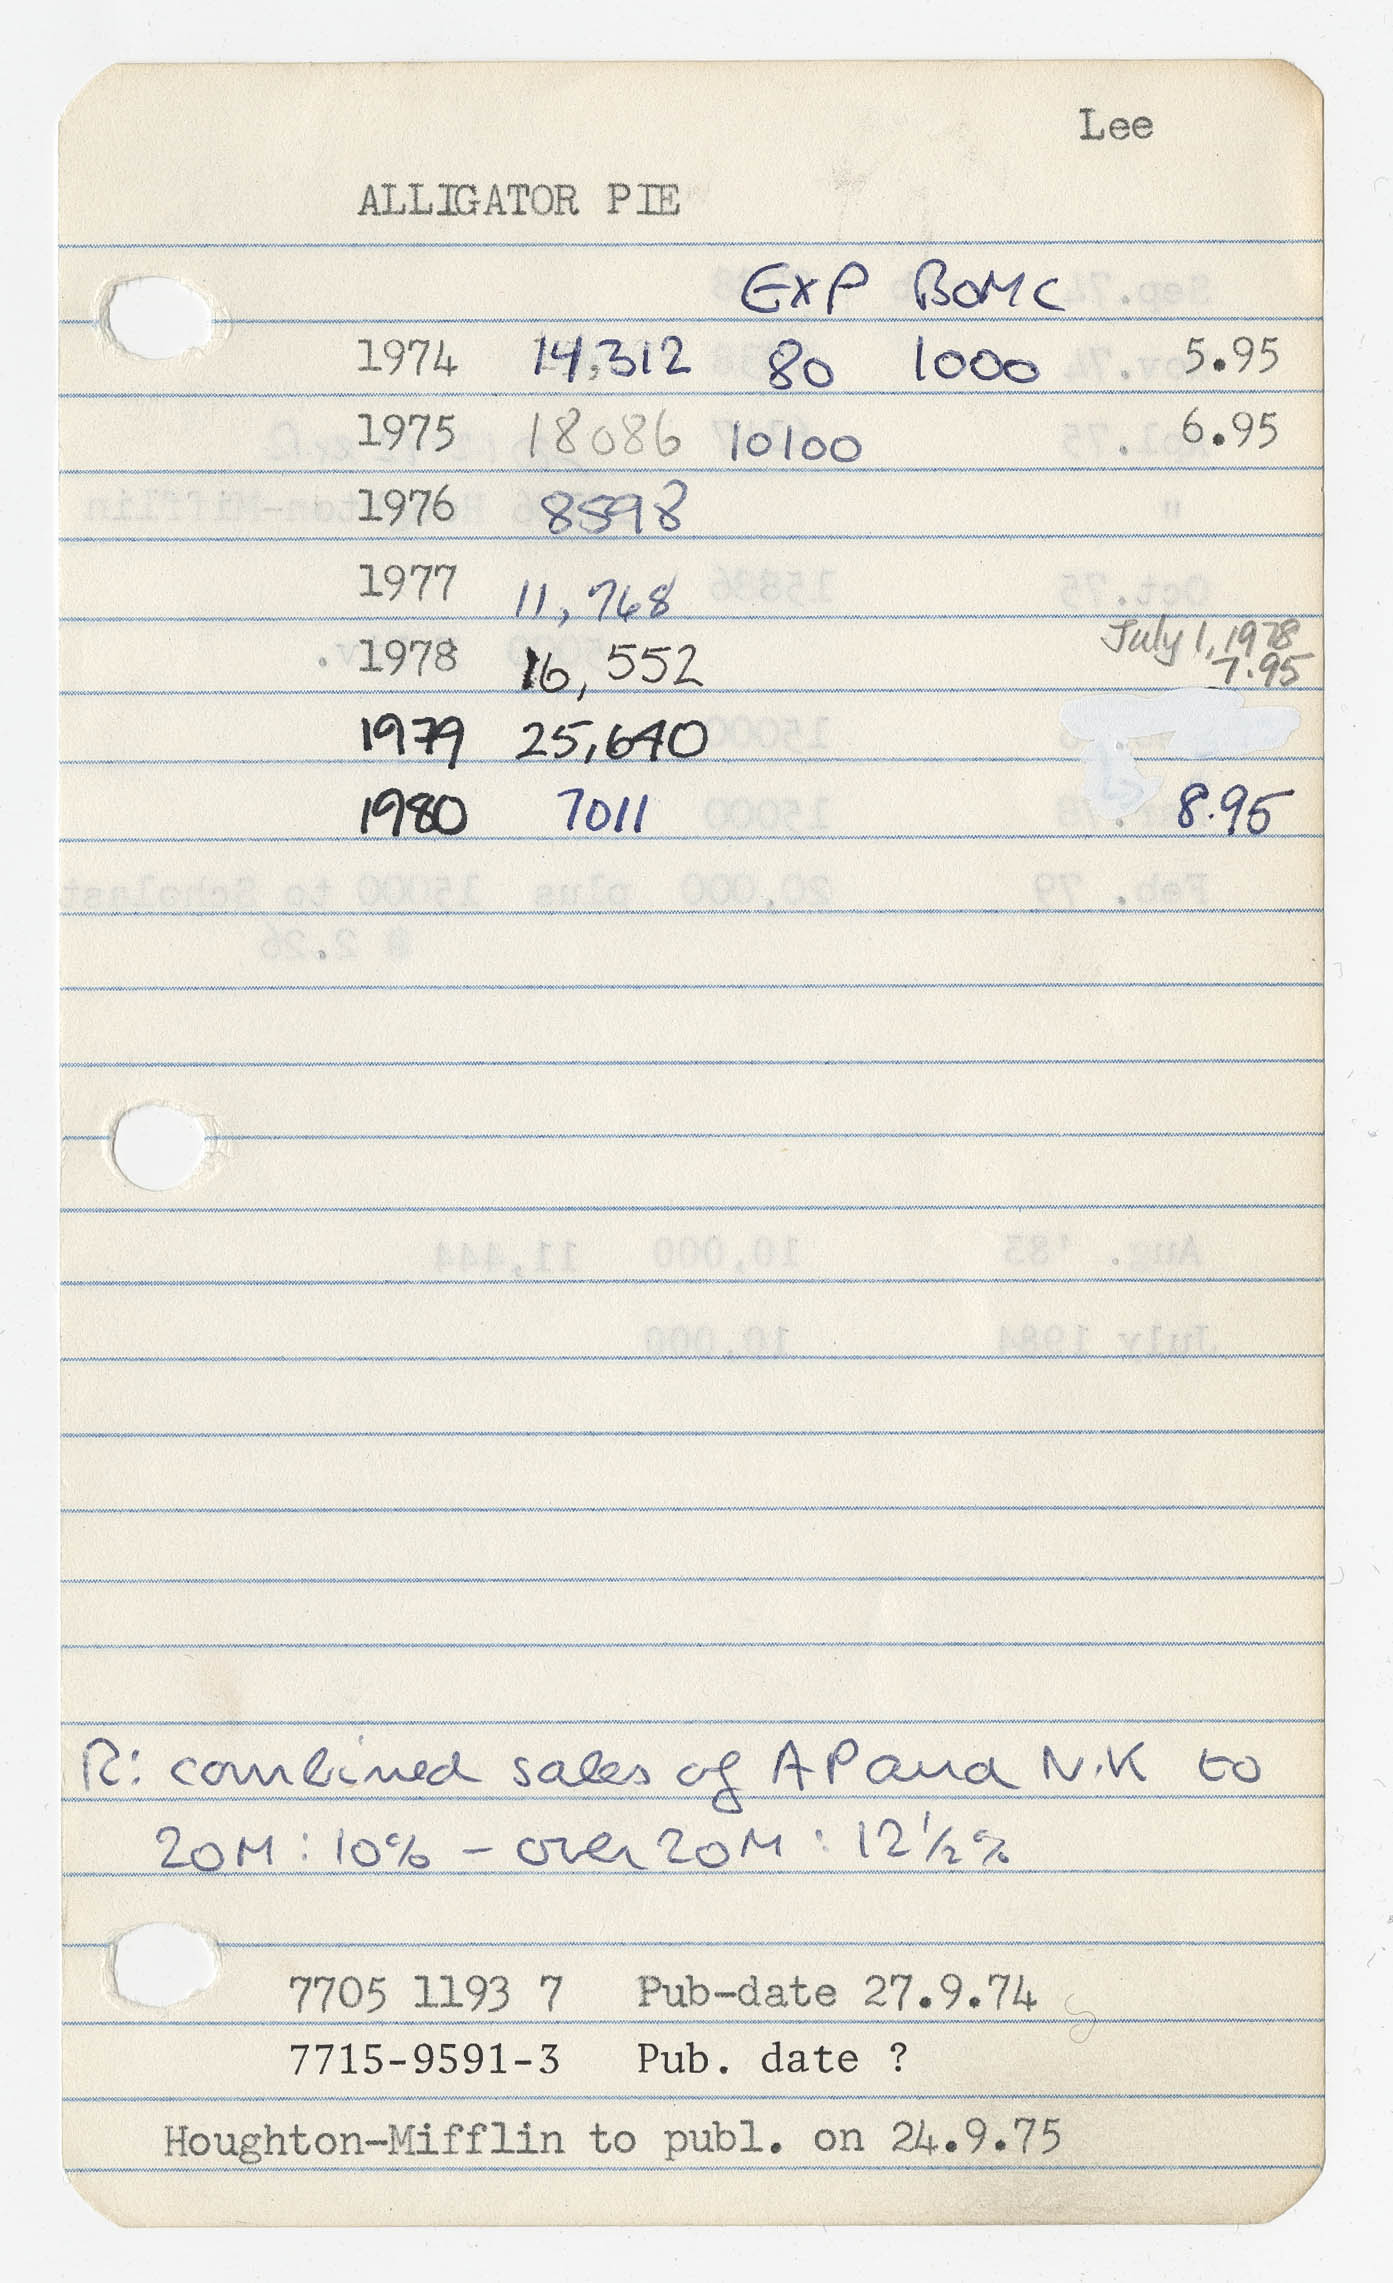 Lee
ALLIGATOR PIE
EXP BOMC
1974 14,312 80 1000 5.95
1975 18086 10100 6.95
1976 8598
1977 11,768
July 1, 1978
1978 16,552 7.95
1979 25,640
1980 7011 8.95
R: combined sales of AP and N.K to
20M : 10% - over 20M : 12½%
7705 1193 7 Pub-date 27.9.74
7715-9591-3 Pub. date ?
Houghton-Mifflin to publ. on 24.9.75